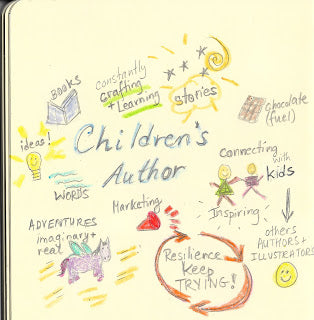 BOOKS
Constantly
Crafting
+ Learning
stories
chocolate
(fuel)
ideas!
Children's
Author
Connecting
with
kids
WORDS
Inspiring
Marketing
ADVENTURES
imaginary +
real
Resilience
Keep
TRYING!
others
AUTHORS +
ILLUSTRATORS